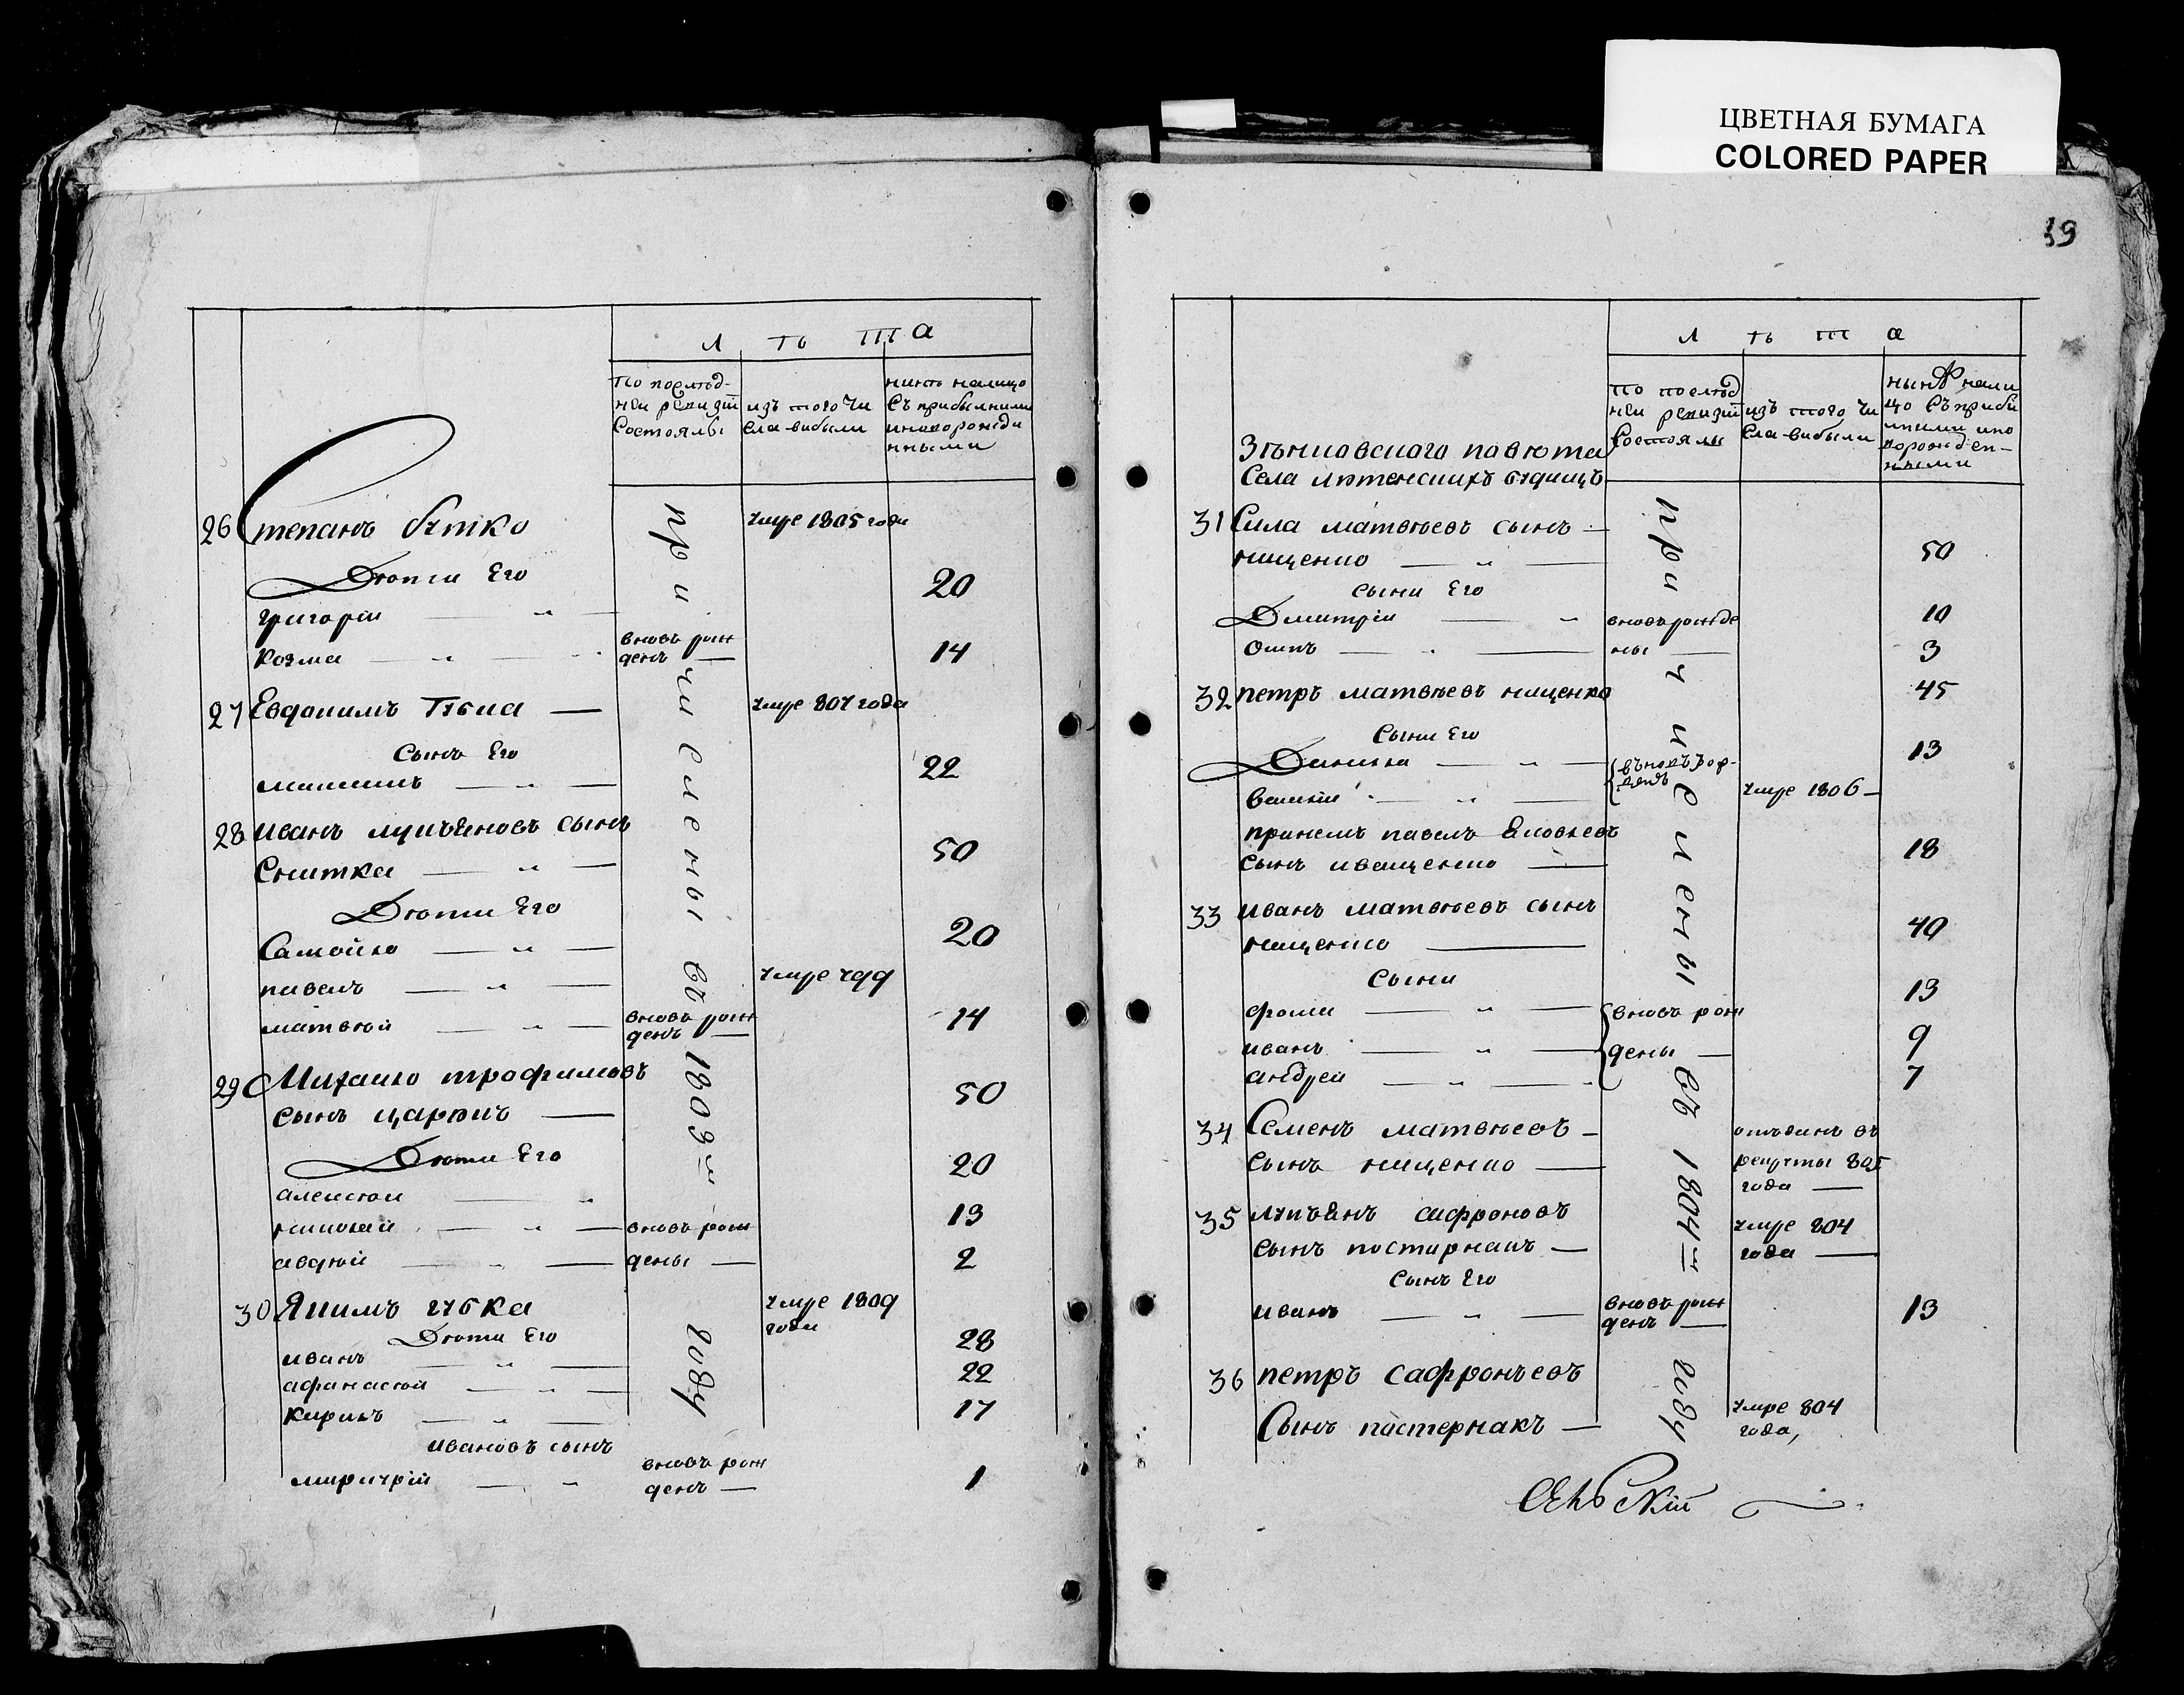 ЦВЕТНАЯ БУМАГА
COLORED PAPER
Л ѣ т а
По послѣд-
ней ревизіи
состоялы
изъ того чи
сла выбыли
нинѣ налицо
съ прибылими
иноворожде
нными
26 Степанъ
умре 1805 года
Дѣти Его
20
григорій
Козма
вновь рож
денъ
14
27 Евдокимъ
умре 807 года
Сынъ Его
максимъ
22
28 иванъ лукъяновъ сынъ
Снитка
50
Дѣти Его
Самойло
20
павелъ
умре 799
матвѣй
вновь рож
денъ
14
29 Михайло трофимовъ
сынъ царикъ
50
Дѣти Его
алексѣй
20
николай
вновь рож
13
авдѣй
дены
2
30 Якимъ губка
умре 1809
года
Дѣти Его
иванъ
28
афанасѣй
22
Кирикъ
17
ивановъ сынъ
вновь рож
денъ
1
причислены въ 1803м году
39
Л ѣ т а
По послѣд
ней ревизіи
состоялы
изъ того чи
сла выбыли
нынѣ нали
цо съ прибы
лими ино
ворожден-
ными
Зѣньковского повѣта
Села лютенскихъ будищъ
31 Сила матвѣевъ сынъ
нищенко
50
сыни Его
Дмитрій
вновь рожде
10
ны
3
32 петръ матвѣевъ нищенко
45
Сыни Его
Данила
13
василій
умре 1806
павелъ
сынъ иващенко
18
33 иванъ матвѣевъ сынъ
нищенко
40
Сыни
фома
вновь рож
13
иванъ
дены
9
андрей
7
34 Семенъ матвѣевъ
сынъ нищенко
отъданъ въ
рекруты 805
года
35 лукъянъ сафроновъ
сынъ постирнакъ
умре 804
года
Сынъ Его
иванъ
вновь рож
денъ
13
36 петръ сафронъевъ
Сынъ постернакъ
умре 804
года,
причислены въ 1804м году